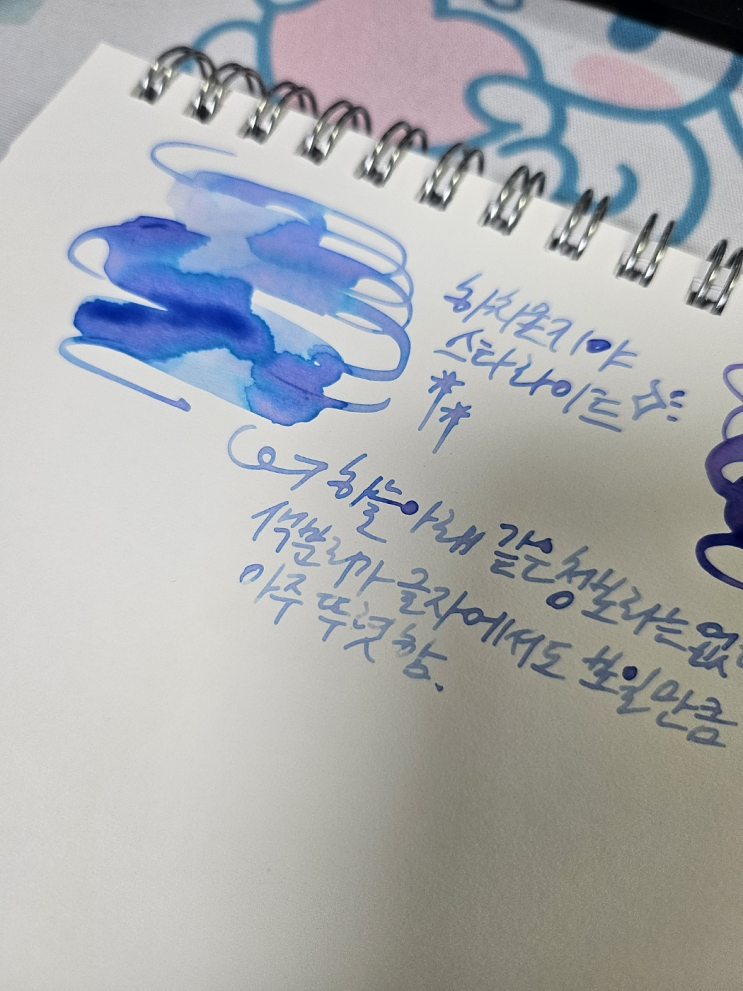 하치몬지야
스타라이트
하늘 아래 같은 청보라는 없
색분리가 글자에서도 보일만큼
아주 뚜렷함.